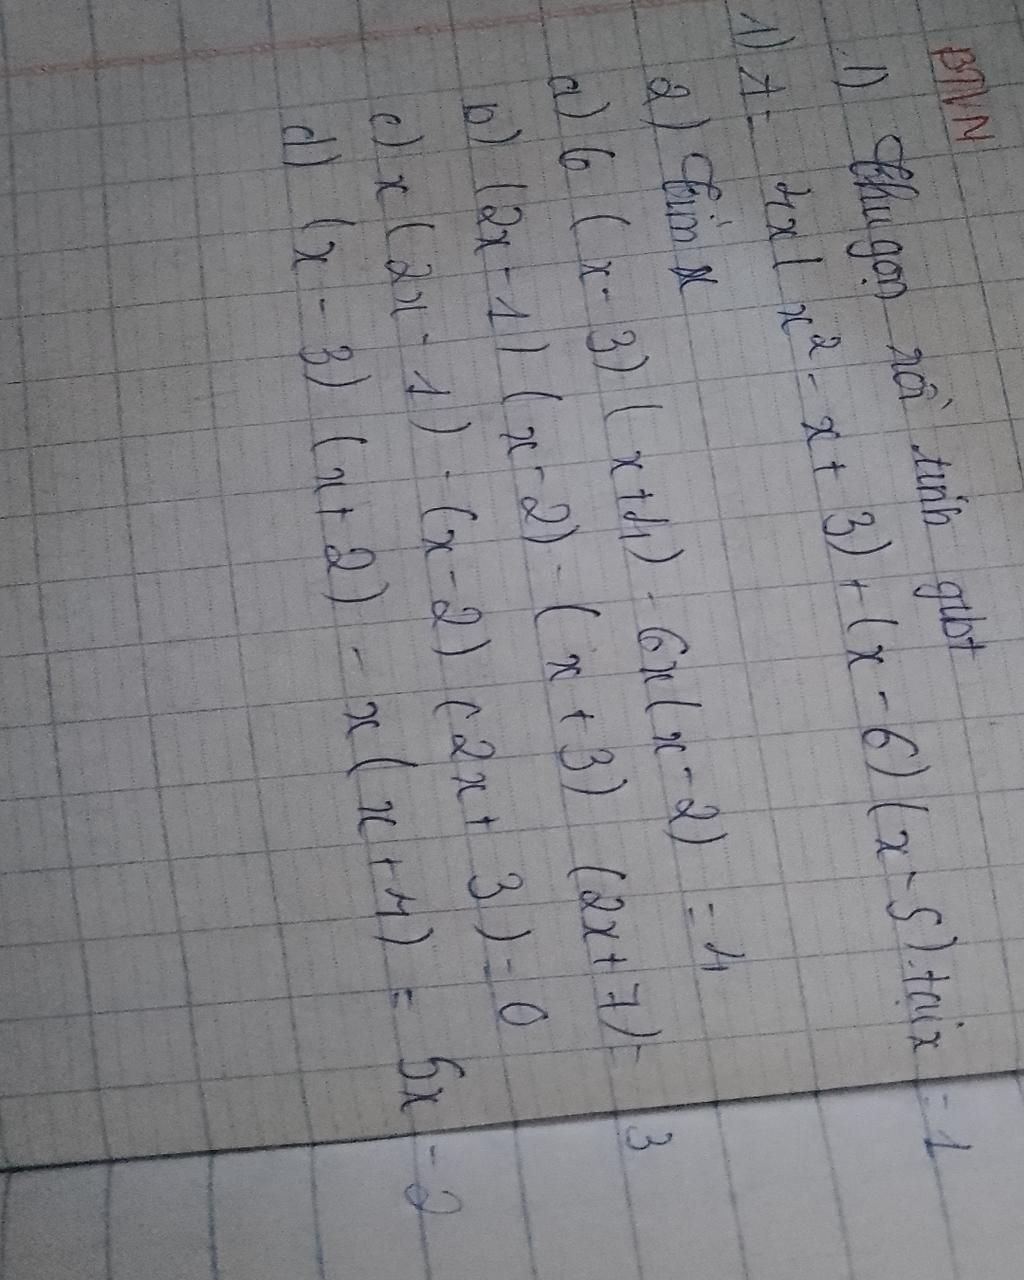 BTVN
1) Thu gọn rồi tính gtbt
1) A = 4x(x² - x + 3) + (x - 6)(x - 5). tại x = 1
2) Tìm x
a) 6(x - 3)(x + 4) - 6x(x - 2) = 4
b) (2x - 1)(x - 2) - (x + 3)(2x + 7) = 3
c) x(2x - 1) - (x - 2)(2x + 3) = 0
d) (x - 3)(x + 2) - x(x + 4) = 5x - 2